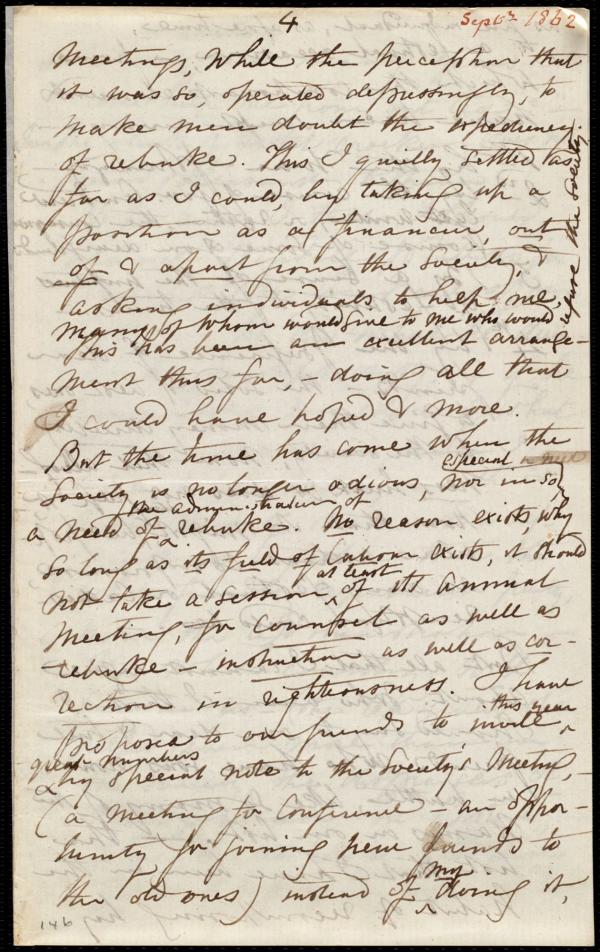 4
Sept 1862
Meetings, While the perception that
it was so, operated depressingly, to
make men doubt the expediency
of rebuke. This I quietly settled as
far as I could, by taking up a
position as a financier, out
of & apart from the Society, &
asking individuals to help me,
many of whom would give to me who would refuse the Society.
This has been an excellent arrange-
ment thus far, - doing all that
I could have hoped & more.
But the time has come when the
Society is no longer odious, nor in so especial
a need of the administration of rebuke. No reason exists, why
so long as its field of labour exists, it should
not take a session, at least of its annual
Meeting, for counsel as well as
rebuke - instruction as well as cor-
rection in righteousness. I have
proposed to our friends to invite, this year
great numbers
& by special note to the Society's Meeting, -
(a meeting for Conference - an oppor-
tunity for joining new friends to
the old ones) instead of my doing it,
146